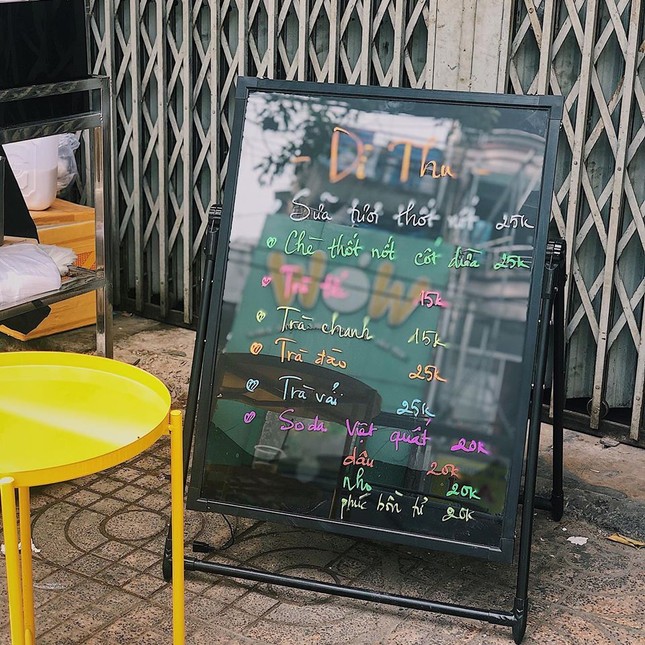 - Dì Thu -
Sữa tươi thốt nốt 25k
Chè thốt nốt cốt dừa 25k
Trà đá 15k
Trà chanh 15k
Trà đào 25k
Trà vải 25k
Soda Việt quất 20k
dâu 20k
nho 20k
phúc bồn tử 20k
WOW